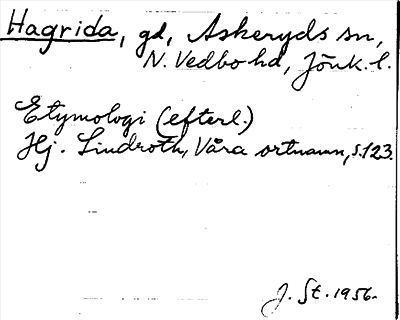 Hagrida, gd, Askeryds sn,
N. Vedbo hd, Jönk. l.
Etymologi (efterl.)
Hj. Lindroth, Våra ortnamn, s. 123.
J. St. 1956.